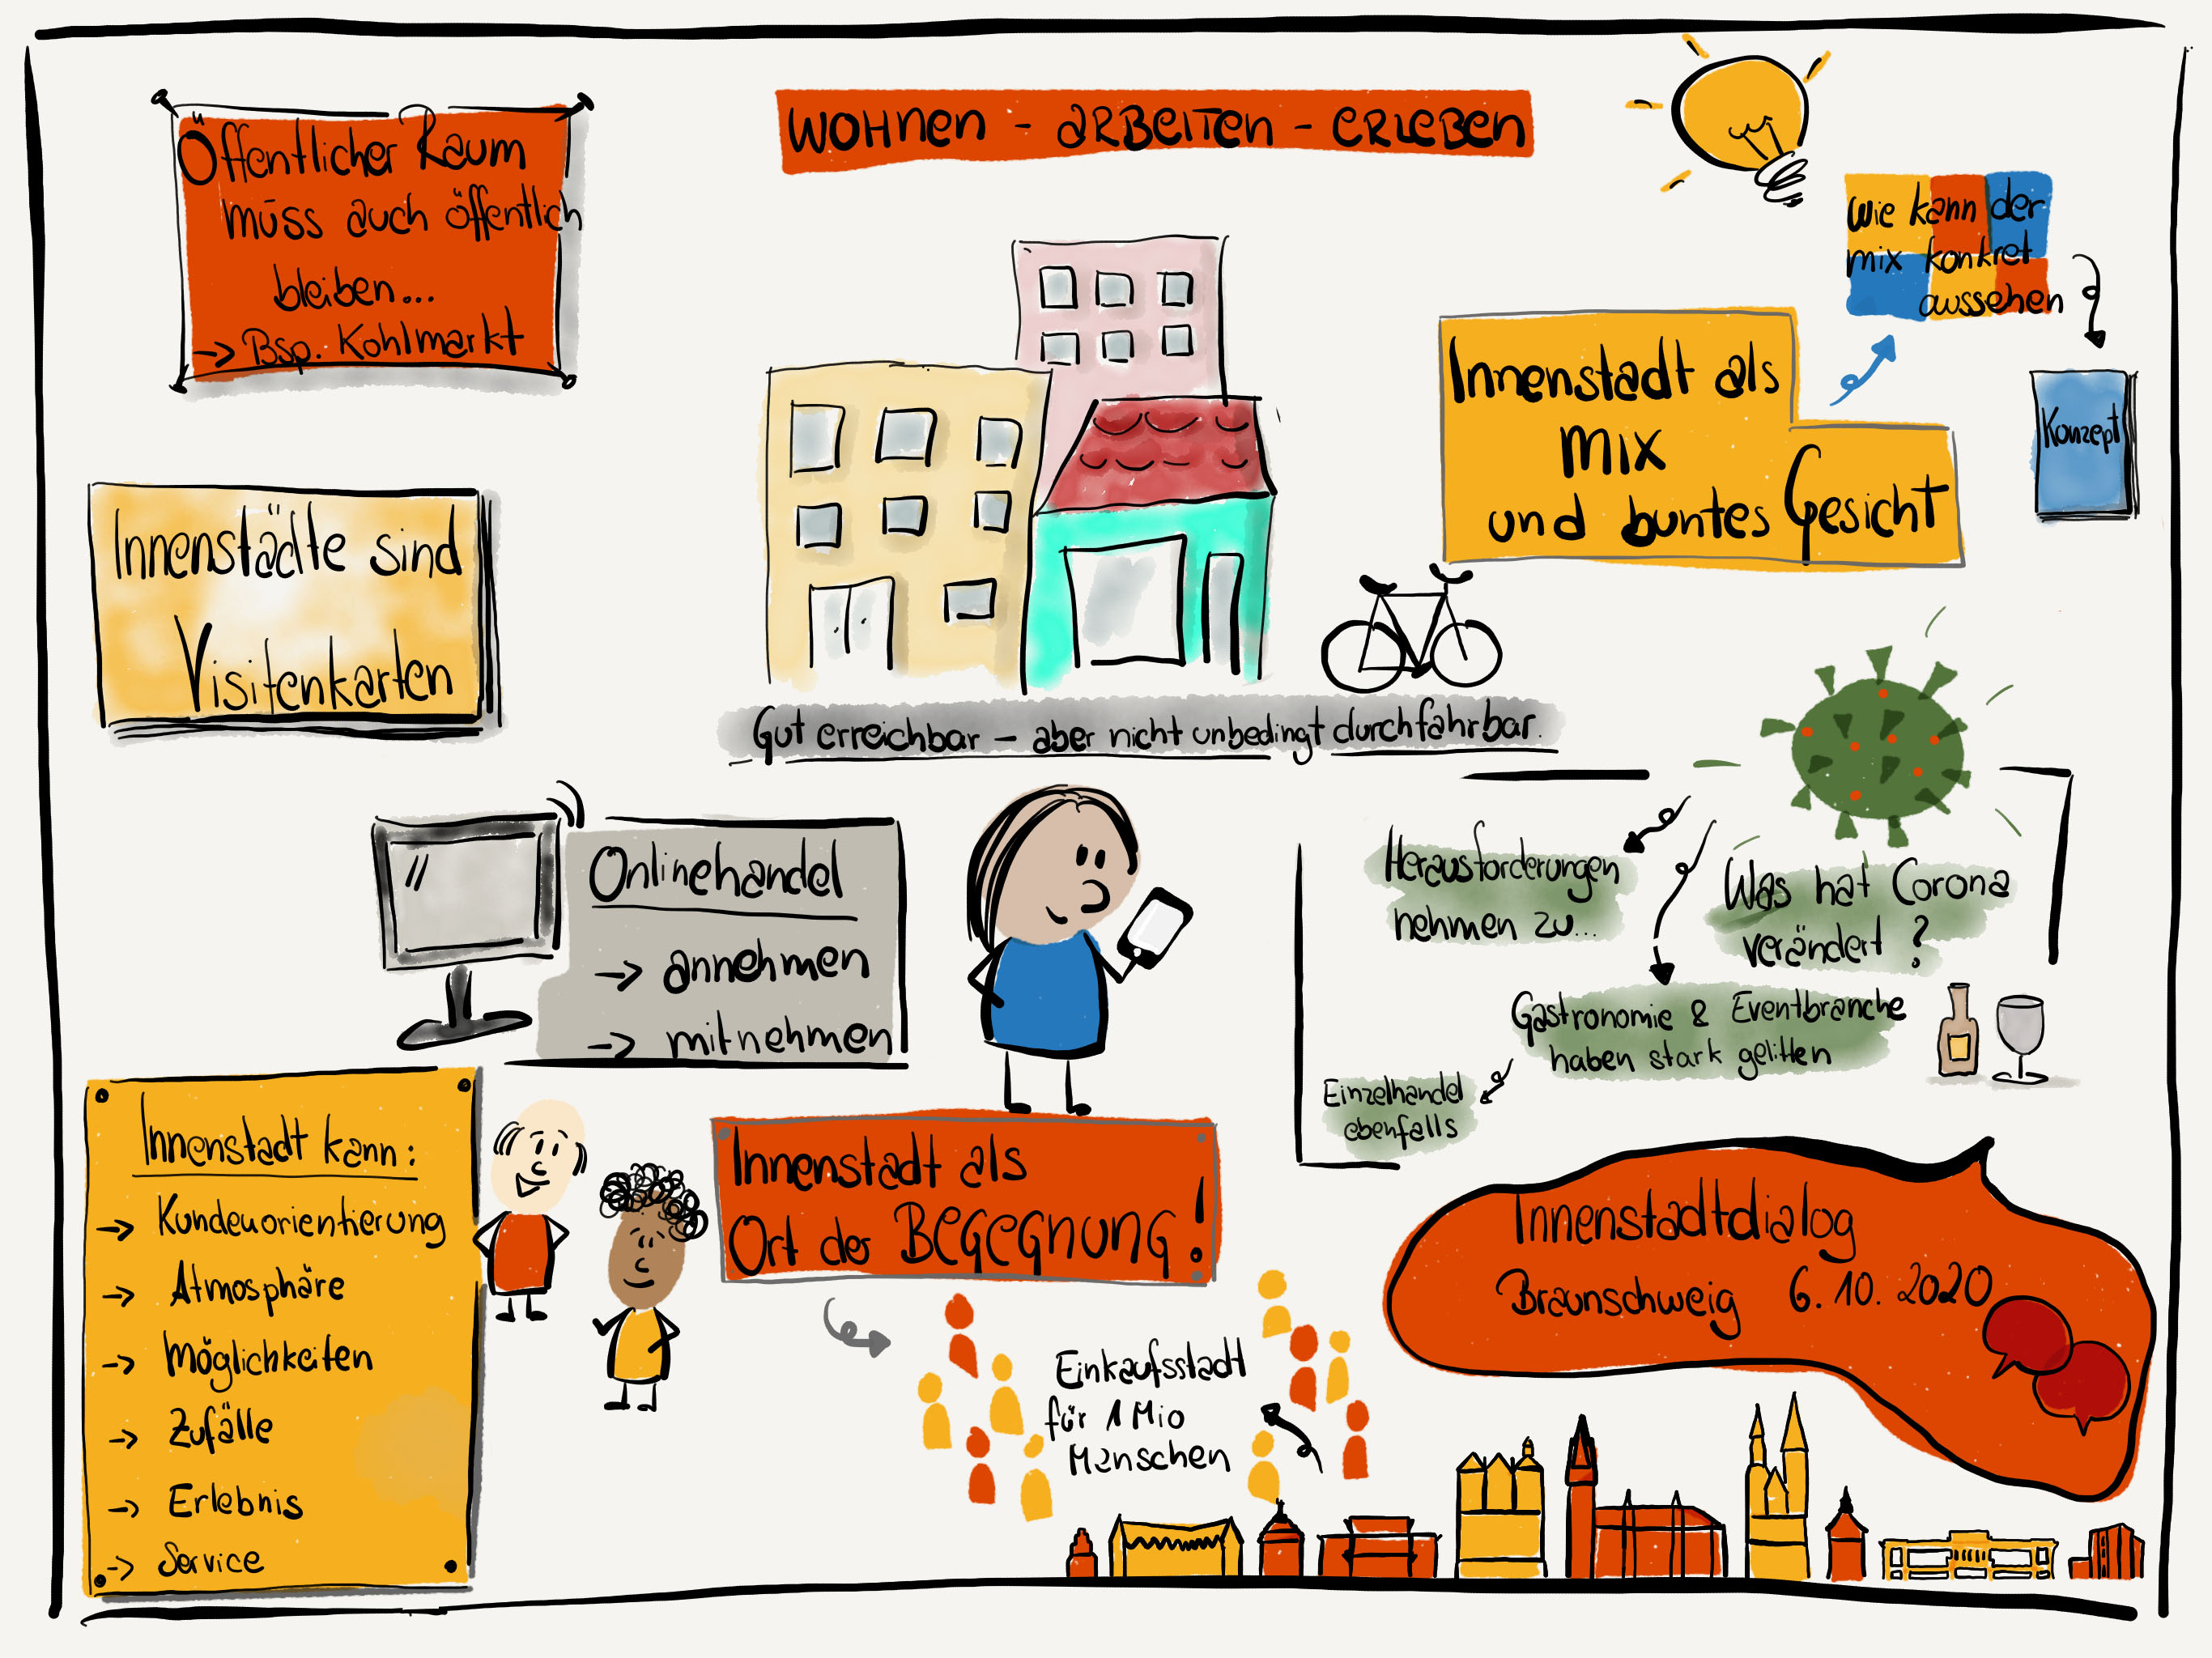 Öffentlicher Raum
muss auch öffentlich
bleiben...
→ Bsp. Kohlmarkt
WOHNEN - ARBEITEN - ERLEBEN
wie kann der
mix konkret
aussehen
Konzept
Innenstadt als
Mix
und buntes Gesicht
Innenstädte sind
Visitenkarten
Gut erreichbar – aber nicht unbedingt durchfahrbar.
Onlinehandel
→ annehmen
→ mitnehmen
Herausforderungen
nehmen zu...
Was hat Corona
verändert ?
Gastronomie & Eventbranche
haben stark gelitten
Einzelhandel
ebenfalls
Innenstadt kann:
→ Kundenorientierung
→ Atmosphäre
→ Möglichkeiten
→ Zufälle
→ Erlebnis
→ Service
Innenstadt als
Ort der BEGEGNUNG!
Einkaufsstadt
für 1 Mio
Menschen
Innenstadtdialog
Braunschweig 6.10.2020